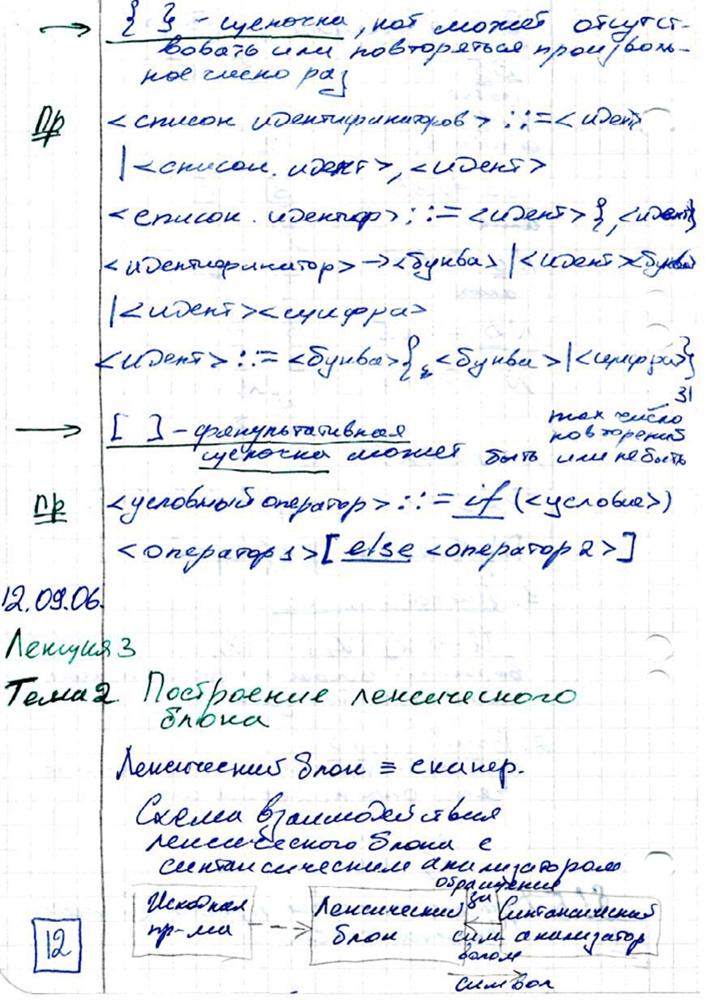 → { } - цепочка, кот может отсутст-
вовать или повторяться произволь-
ное число раз
Пр <список идентификаторов> ::= <идент
|<список. идент>, <идент>
<список. идентиф> ::= <идент> {, <идент}
<идентификатор> → <буква> | <идент><буква
|<идент><цифра>
<идент> ::= <буква>{ <буква>|<цифра>}
31
max число
повторений
→ [ ] - факультативная
цепочка может быть или не быть
Пр <условный оператор> ::= if (<условие>)
<оператор 1>[else <оператор 2>]
12.09.06.
Лекция 3
Тема 2. Построение лексического
блока
Лексический блок ≡ сканер.
Схема взаимодействия
лексического блока с
синтаксическим анализатором
Исходная
пр-ма
Лексический
блок
обращение
за
сим
волом
Синтаксический
анализатор
символ
12